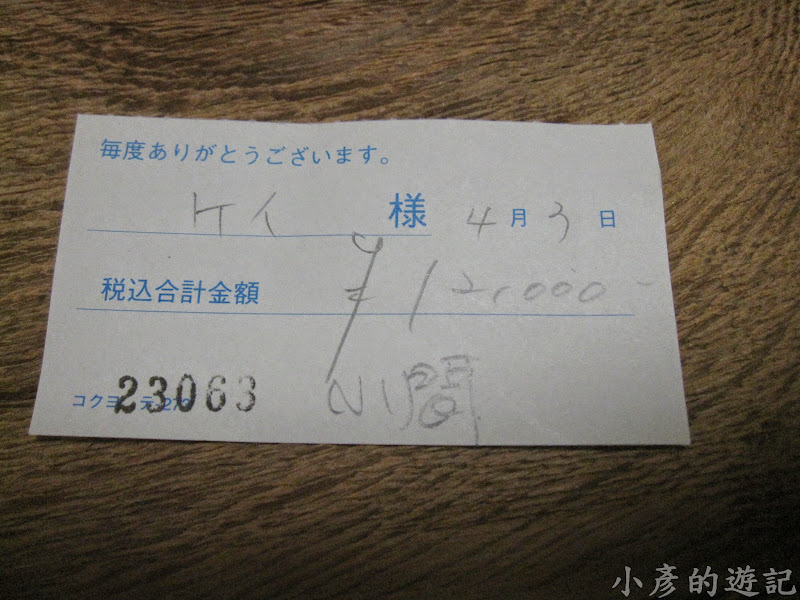 毎度ありがとうございます。
ケイ 様 4月3日
税込合計金額 ¥12,000-
コクヨ テ-273
23063
小彥的遊記